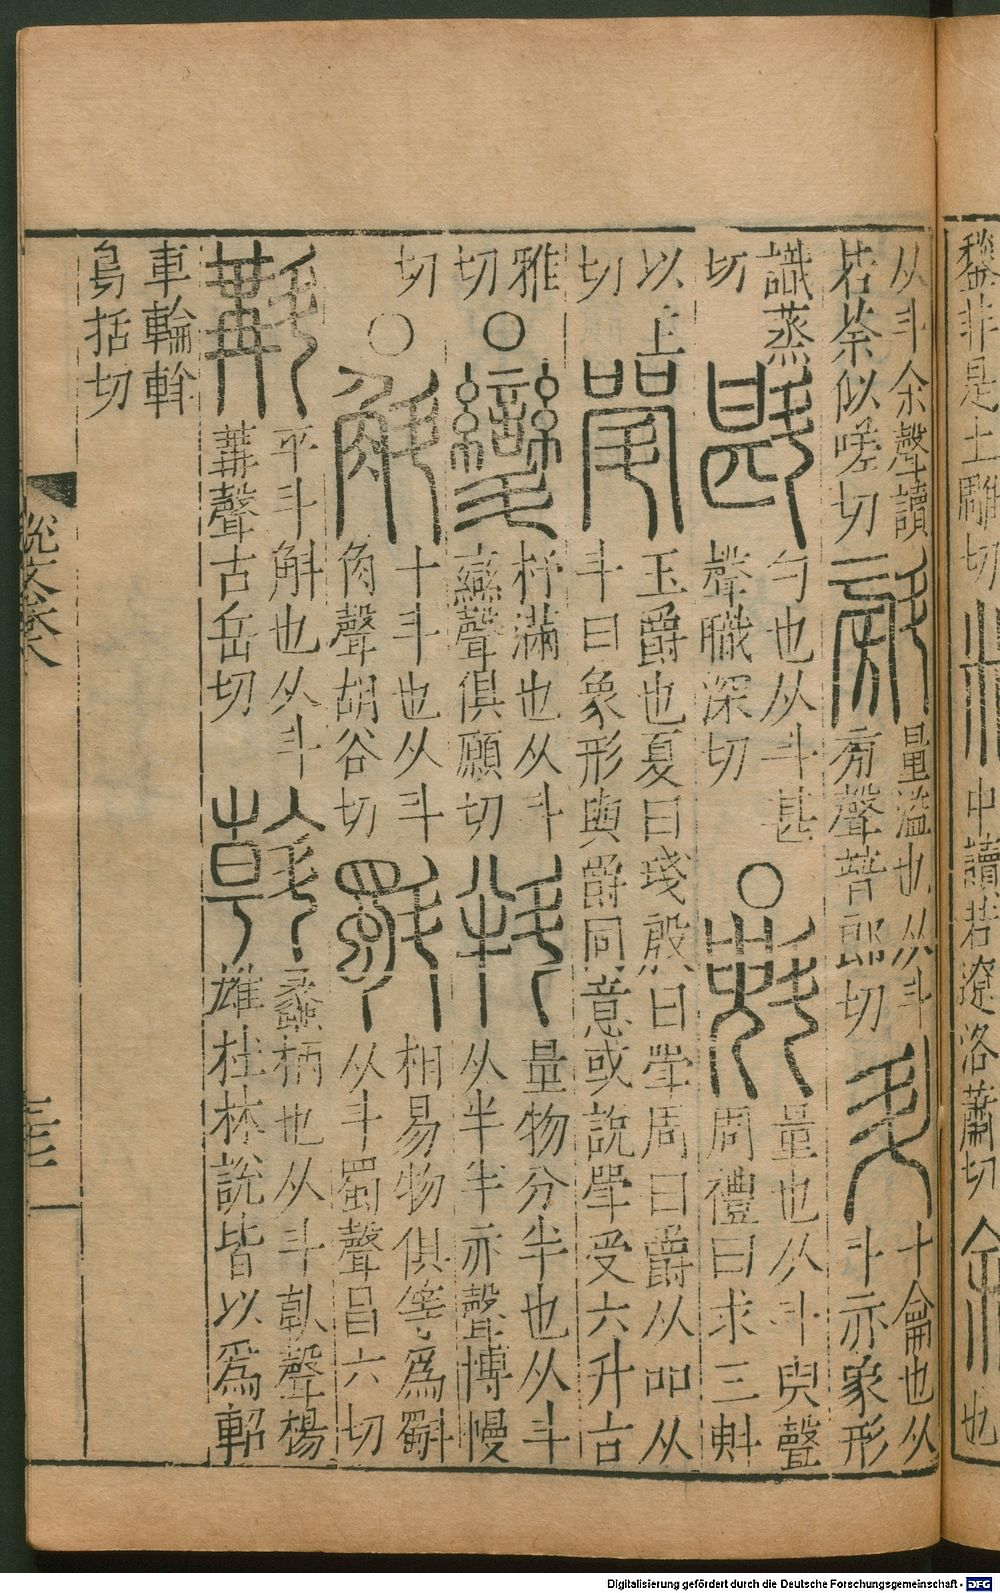 非是土雕切
中讀若遼洛蕭切
也
从斗余聲讀
若荼似嗟切
㪍
量溢也从斗
旁聲普郎切
升
十龠也从
斗亦象形
識蒸
切
斟
勺也从斗甚
聲職深切
○
斞
量也从斗臾聲
周禮曰求三斞
以主
切
斝
玉爵也夏曰琖殷曰斝周曰爵从吅从
斗曰象形與爵同意或說斝受六升古
雅
切
○
㪻
杼滿也从斗
䜌聲俱願切
料
量物分半也从斗
从半半亦聲博幔
切
○
斛
十斗也从斗
角聲胡谷切
斣
相易物俱等爲斣
从斗蜀聲昌六切
斠
平斗斛也从斗
冓聲古岳切
斡
蠡柄也从斗倝聲楊
雄杜林說皆以爲軺
車輪斡
烏括切
Digitalisierung gefördert durch die Deutsche Forschungsgemeinschaft - DFG